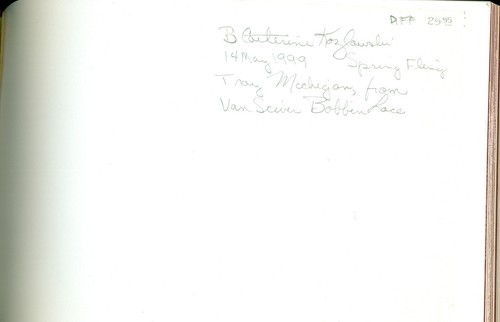 D.F.F 29.99
B Catterine Kozlowski
14 May 1999 Spring Fling
Troy Michigan, from
Van Sciver Bobbin Lace